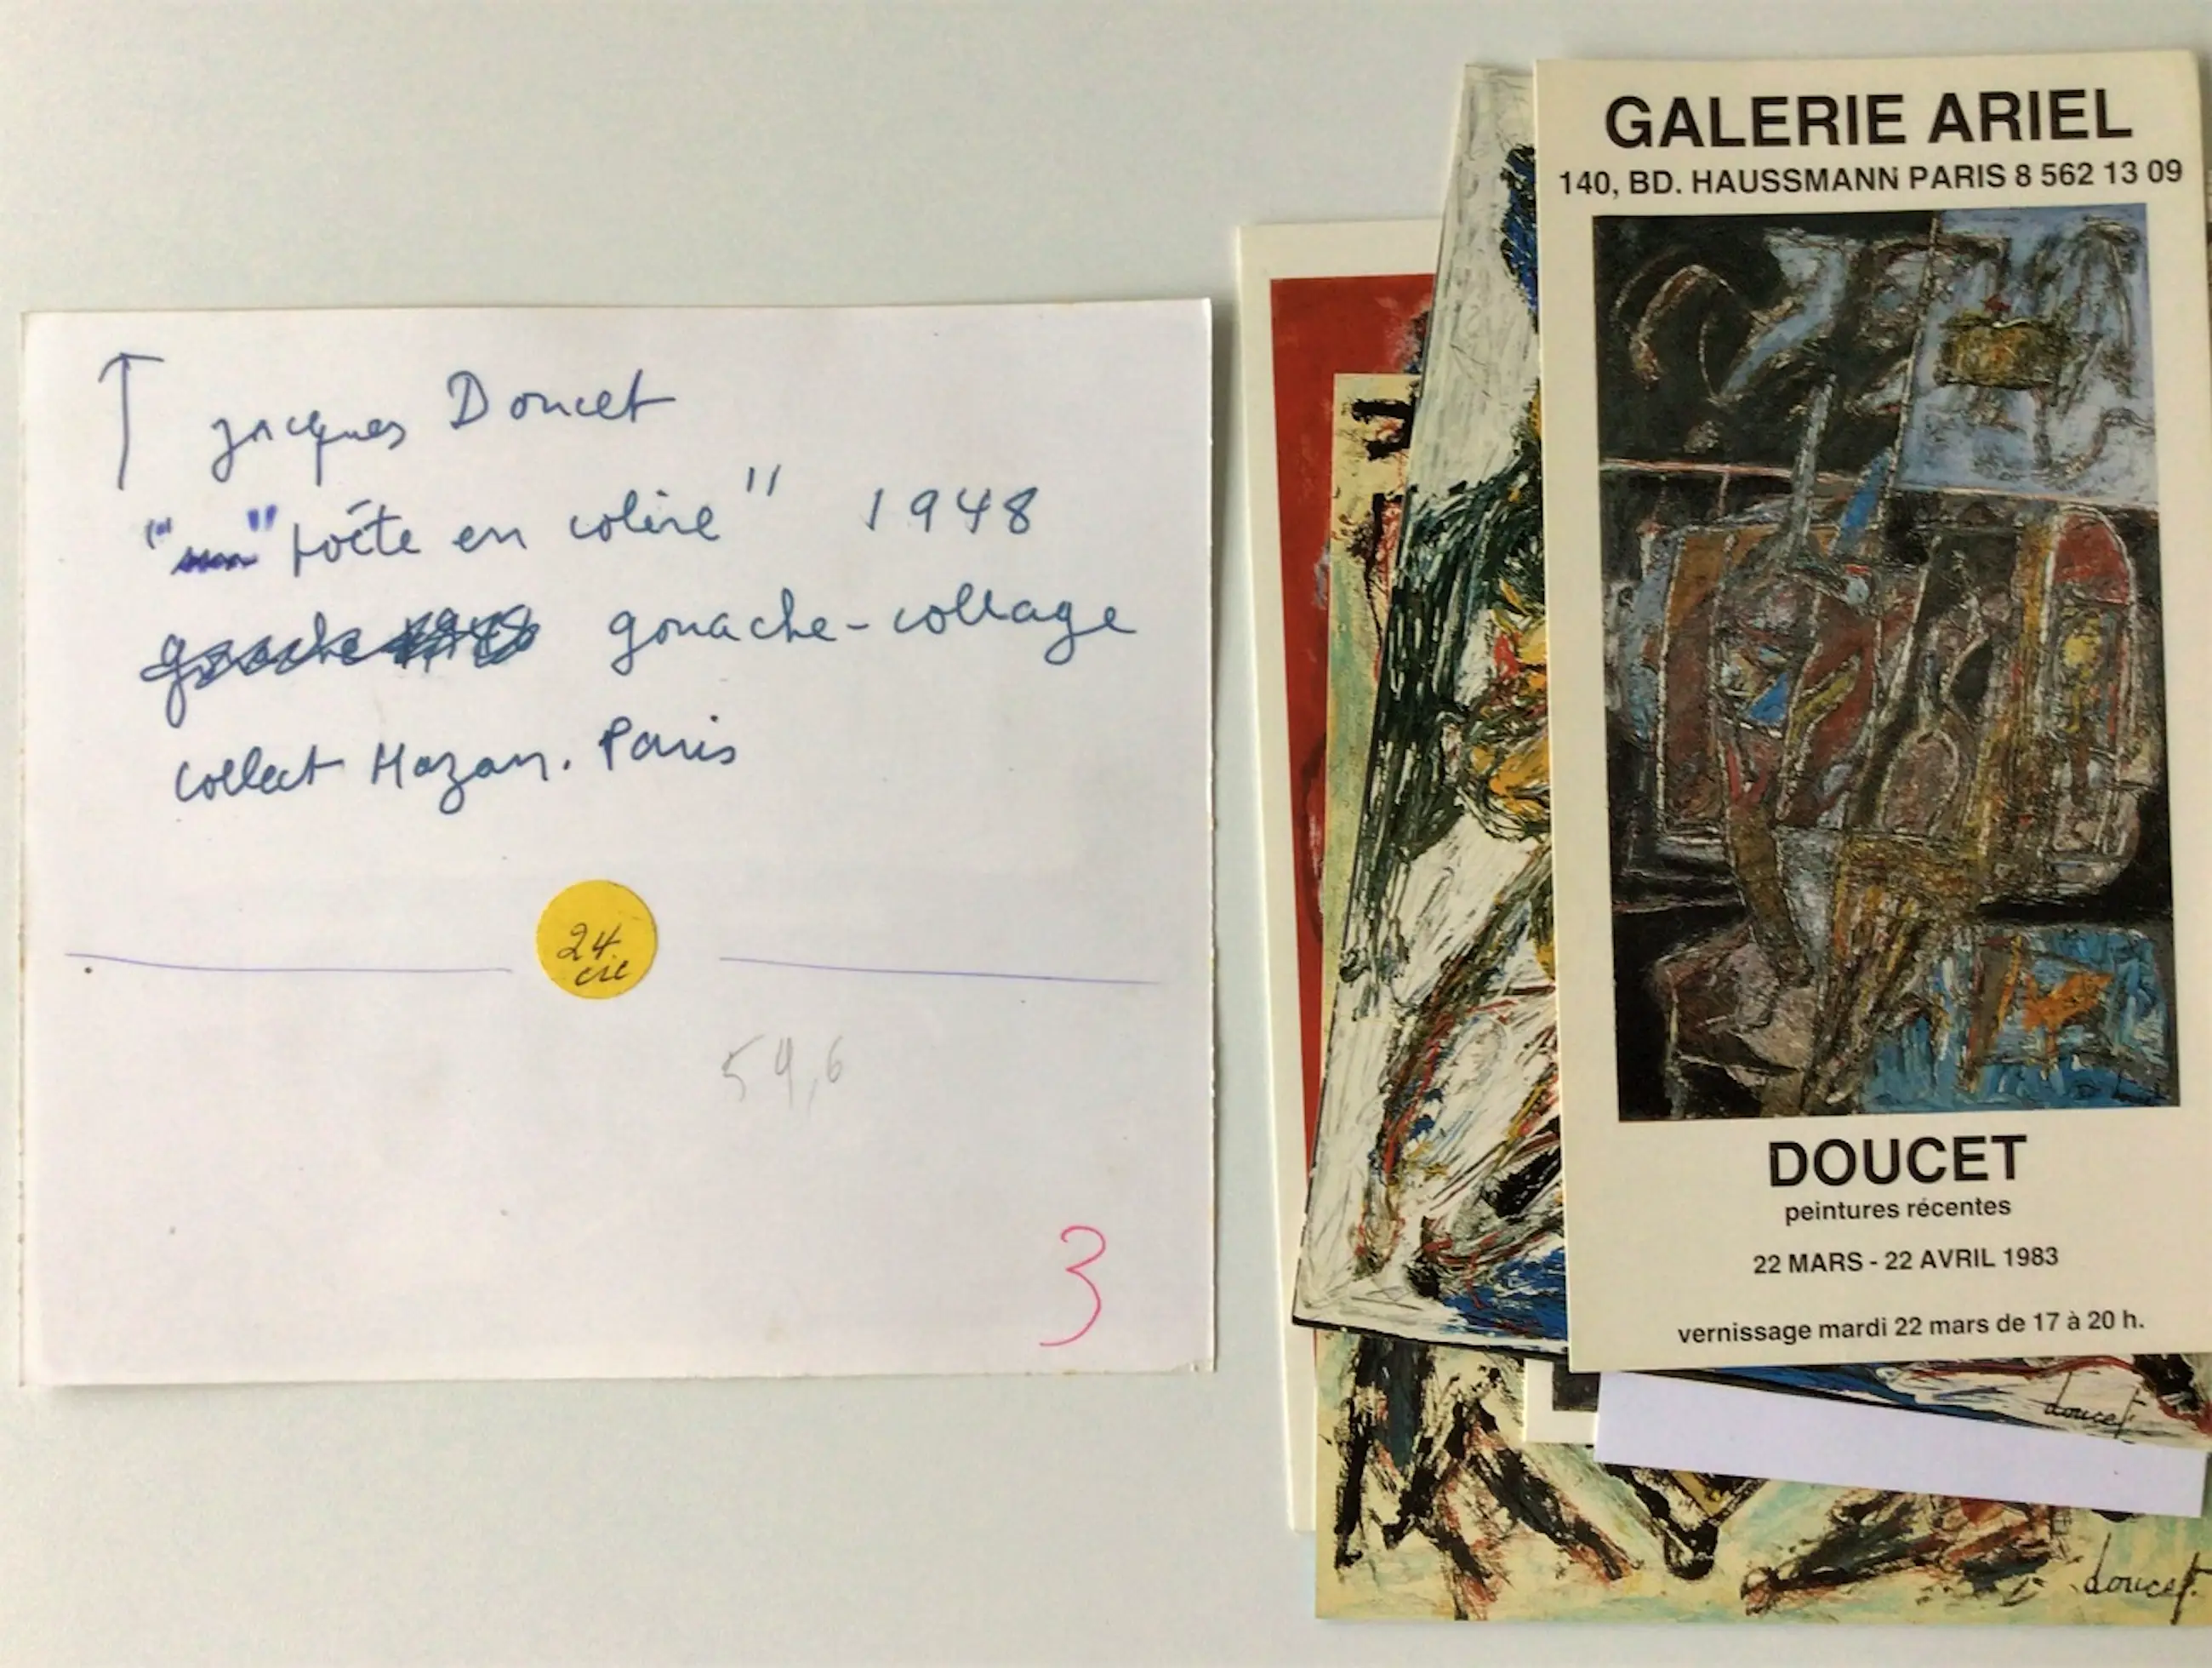 Jacques Doucet
"un" poête en colère" 1948
gouache 1948 gouache-collage
collect Hazan. Paris
24
cie
54,6
3
GALERIE ARIEL
140, BD. HAUSSMANN PARIS 8 562 13 09
DOUCET
peintures récentes
22 MARS - 22 AVRIL 1983
vernissage mardi 22 mars de 17 à 20 h.
doucet
doucet.